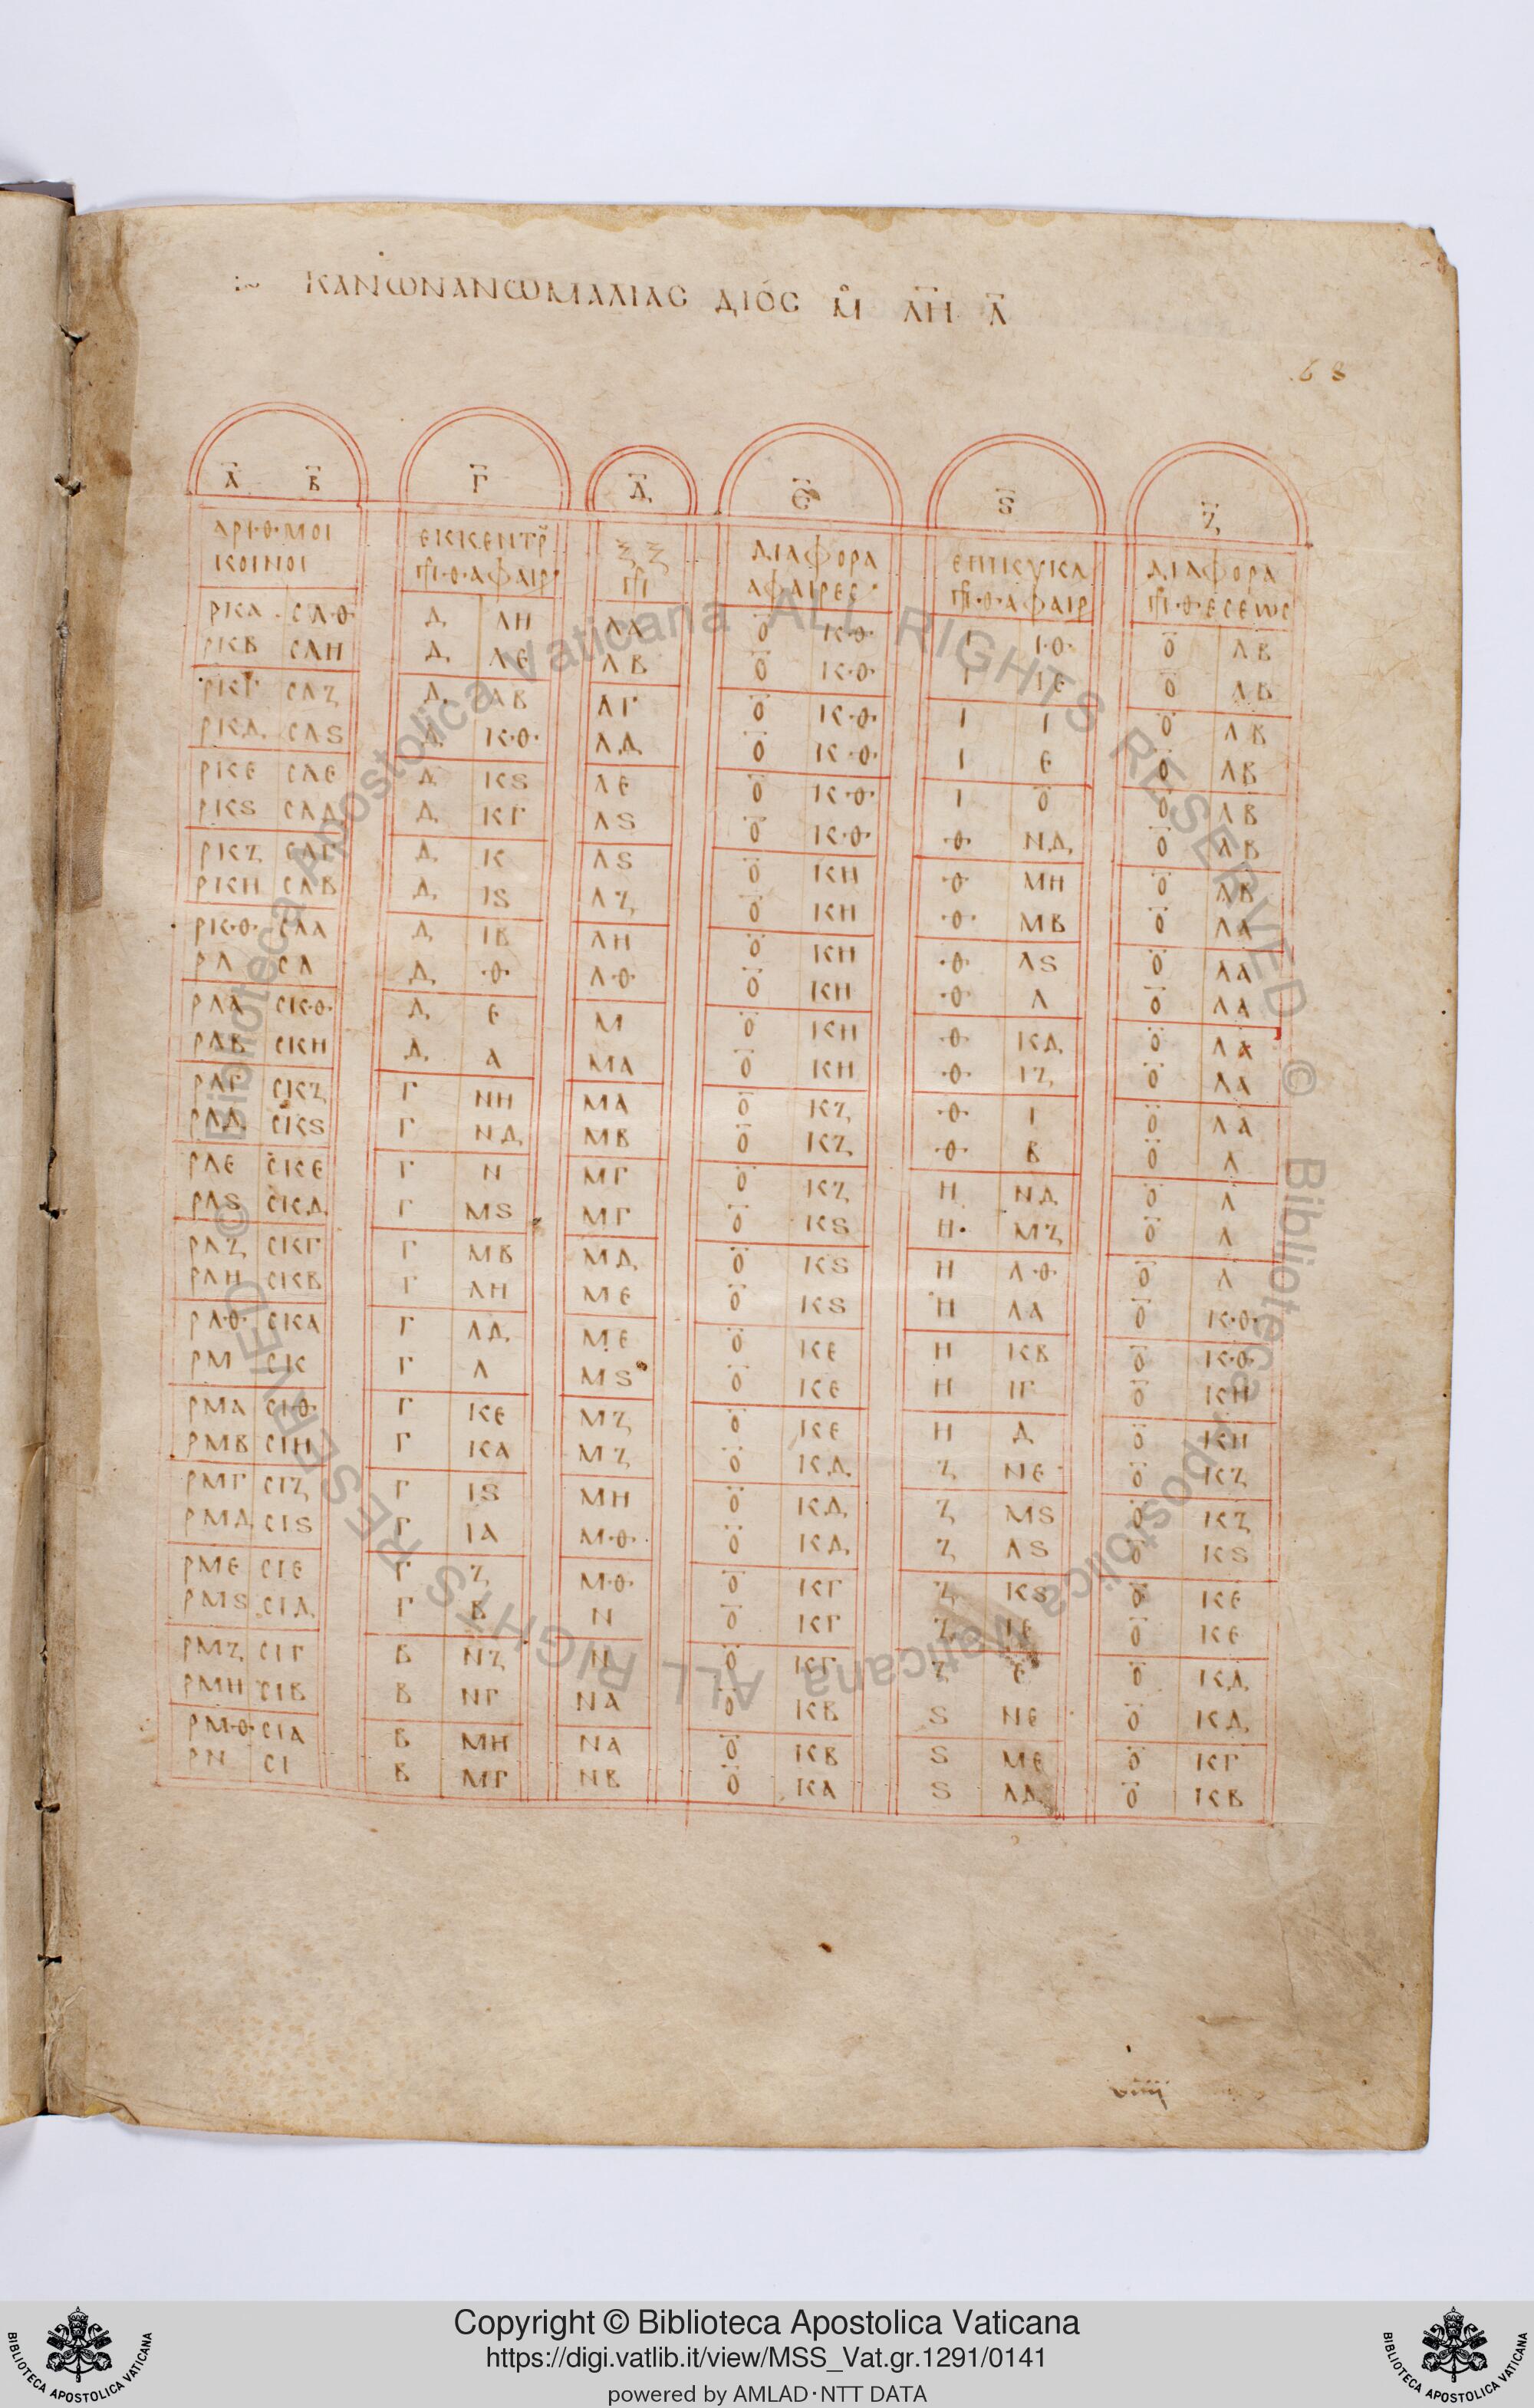 :~ ΚΑΝΩΝΑΝΩΜΑΛΙΑΣ ΔΙΟΣ Μ̊ ΛΗ Λ̄
68
Α̅ Β̅ Γ̅ Δ̅ Ε̅ Ϛ̅ Ζ̅
ΑΡΙΘΜΟΙ ΕΚΚΕΝΤΡ ΞΞ ΔΙΑΦΟΡΑ ΕΠΙΚΥΚΛ ΔΙΑΦΟΡΑ
ΚΟΙΝΟΙ ΠΡΘΑΦΑΙΡ ΑΦΑΙΡΕΣ ΠΡΘΑΦΑΙΡ ΠΡΘΕΣΕΩΣ
ΡΚΑ ΣΛΘ Δ ΛΗ ΛΑ Ο̅ ΚΘ Ι ΙΘ Ο̅ ΛΒ
ΡΚΒ ΣΛΗ Δ ΛΕ ΛΒ Ο̅ ΚΘ Ι ΙΕ Ο̅ ΛΒ
ΡΚΓ ΣΛΖ Δ ΛΒ ΛΓ Ο̅ ΚΘ Ι Ι Ο̅ ΛΒ
ΡΚΔ ΣΛϚ Δ ΚΘ ΛΔ Ο̅ ΚΘ Ι Ε Ο̅ ΛΒ
ΡΚΕ ΣΛΕ Δ ΚϚ ΛΕ Ο̅ ΚΘ Ι Ο̅ Ο̅ ΛΒ
ΡΚϚ ΣΛΔ Δ ΚΓ ΛϚ Ο̅ ΚΘ Θ ΝΔ Ο̅ ΛΒ
ΡΚΖ ΣΛΓ Δ Κ ΛϚ Ο̅ ΚΗ Θ ΜΗ Ο̅ ΛΒ
ΡΚΗ ΣΛΒ Δ ΙϚ ΛΖ Ο̅ ΚΗ Θ ΜΒ Ο̅ ΛΑ
ΡΚΘ ΣΛΑ Δ ΙΒ ΛΗ Ο̅ ΚΗ Θ ΛϚ Ο̅ ΛΑ
ΡΛ ΣΛ Δ Θ ΛΘ Ο̅ ΚΗ Θ Λ Ο̅ ΛΑ
ΡΛΑ ΣΚΘ Δ Ε Μ Ο̅ ΚΗ Θ ΚΔ Ο̅ ΛΑ
ΡΛΒ ΣΚΗ Δ Α ΜΑ Ο̅ ΚΗ Θ ΙΖ Ο̅ ΛΑ
ΡΛΓ ΣΚΖ Γ ΝΗ ΜΑ Ο̅ ΚΖ Θ Ι Ο̅ ΛΑ
ΡΛΔ ΣΚϚ Γ ΝΔ ΜΒ Ο̅ ΚΖ Θ Β Ο̅ Λ
ΡΛΕ ΣΚΕ Γ Ν ΜΓ Ο̅ ΚΖ Η ΝΔ Ο̅ Λ
ΡΛϚ ΣΚΔ Γ ΜϚ ΜΓ Ο̅ ΚϚ Η ΜΖ Ο̅ Λ
ΡΛΖ ΣΚΓ Γ ΜΒ ΜΔ Ο̅ ΚϚ Η ΛΘ Ο̅ Λ
ΡΛΗ ΣΚΒ Γ ΛΗ ΜΕ Ο̅ ΚϚ Η ΛΑ Ο̅ ΚΘ
ΡΛΘ ΣΚΑ Γ ΛΔ ΜΕ Ο̅ ΚΕ Η ΚΒ Ο̅ ΚΘ
ΡΜ ΣΚ Γ Λ ΜϚ Ο̅ ΚΕ Η ΙΓ Ο̅ ΚΗ
ΡΜΑ ΣΙΘ Γ ΚΕ ΜΖ Ο̅ ΚΕ Η Δ Ο̅ ΚΗ
ΡΜΒ ΣΙΗ Γ ΚΑ ΜΖ Ο̅ ΚΔ Ζ ΝΕ Ο̅ ΚΖ
ΡΜΓ ΣΙΖ Γ ΙϚ ΜΗ Ο̅ ΚΔ Ζ ΜϚ Ο̅ ΚΖ
ΡΜΔ ΣΙϚ Γ ΙΑ ΜΘ Ο̅ ΚΔ Ζ ΛϚ Ο̅ ΚϚ
ΡΜΕ ΣΙΕ Γ Ζ ΜΘ Ο̅ ΚΓ Ζ ΚϚ Ο̅ ΚΕ
ΡΜϚ ΣΙΔ Γ Β Ν Ο̅ ΚΓ Ζ ΙΕ Ο̅ ΚΕ
ΡΜΖ ΣΙΓ Β ΝΖ Ν Ο̅ ΚΓ Ζ Ε Ο̅ ΚΔ
ΡΜΗ ΣΙΒ Β ΝΓ ΝΑ Ο̅ ΚΒ Ϛ ΝΕ Ο̅ ΚΔ
ΡΜΘ ΣΙΑ Β ΜΗ ΝΑ Ο̅ ΚΒ Ϛ ΜΕ Ο̅ ΚΓ
ΡΝ ΣΙ Β ΜΓ ΝΒ Ο̅ ΚΑ Ϛ ΛΔ Ο̅ ΚΒ
© Biblioteca Apostolica Vaticana ALL RIGHTS RESERVED
© Biblioteca Apostolica Vaticana ALL RIGHTS RESERVED
Copyright © Biblioteca Apostolica Vaticana
https://digi.vatlib.it/view/MSS_Vat.gr.1291/0141
powered by AMLAD·NTT DATA
BIBLIOTECA APOSTOLICA VATICANA
BIBLIOTECA APOSTOLICA VATICANA